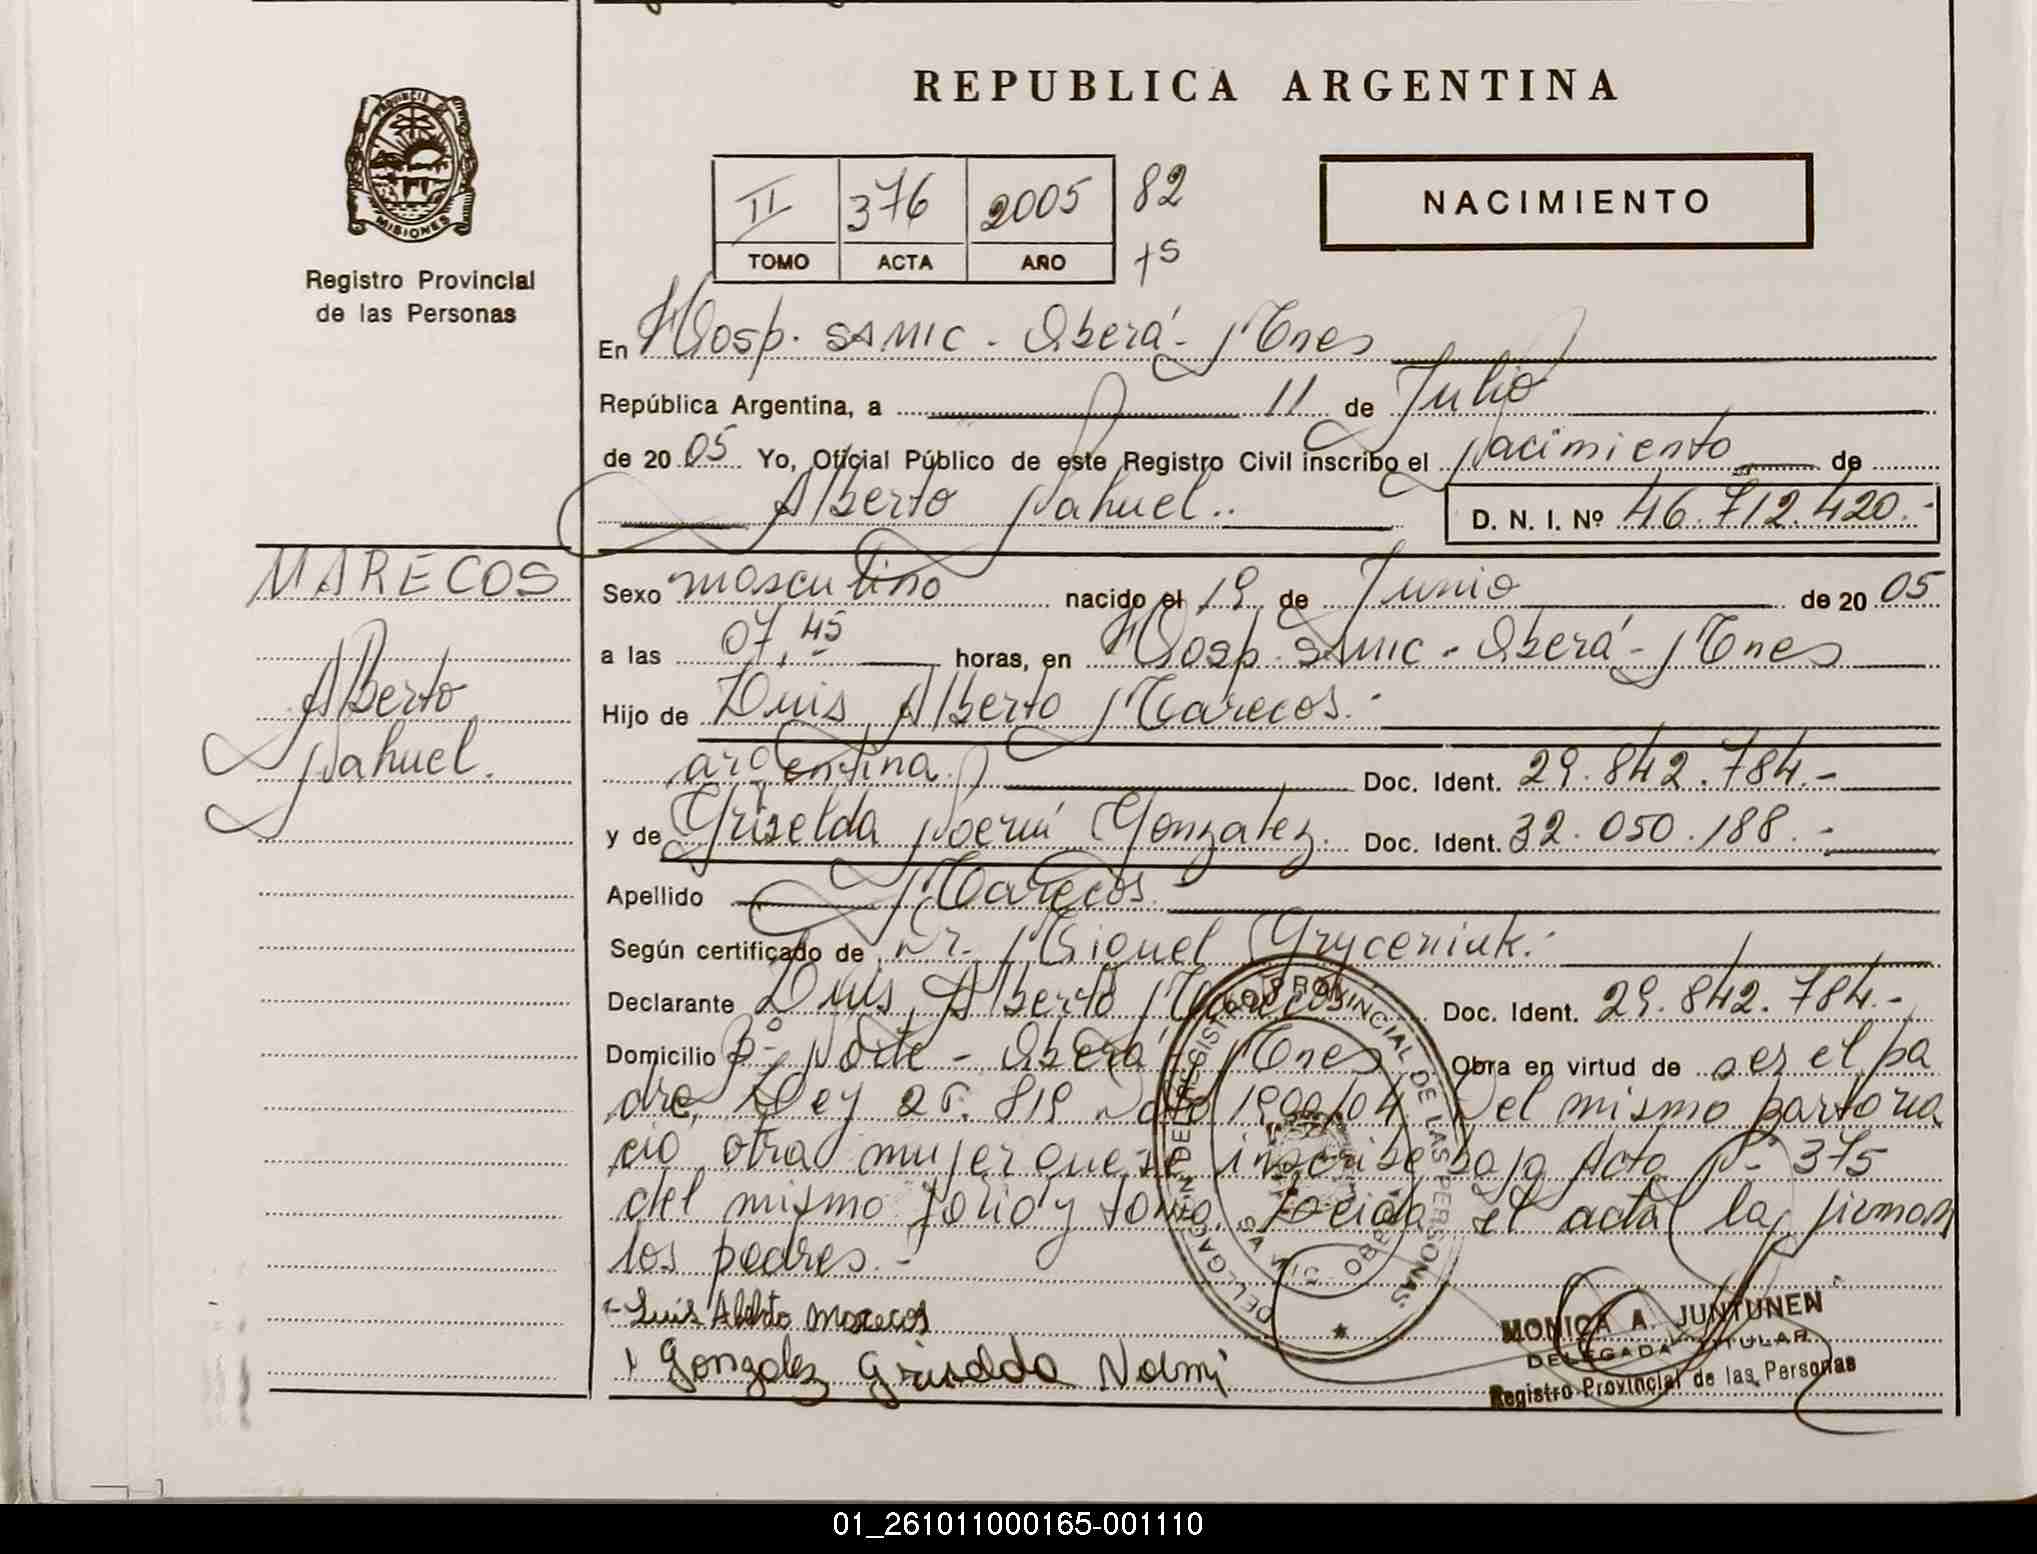 REPUBLICA ARGENTINA
PROVINCIA DE MISIONES
Registro Provincial
de las Personas
II 376 2005 82
TOMO ACTA AÑO 75
NACIMIENTO
En Hosp. SAMIC - Oberá - Mnes
República Argentina, a 11 de Julio
de 2005 Yo, Oficial Público de este Registro Civil inscribo el Nacimiento de
Alberto Nahuel.. D. N. I. Nº 46.712.420.-
MARECOS
Alberto
Nahuel.
Sexo masculino nacido el 19 de Junio de 2005
a las 07,45 horas, en Hosp. SAMIC - Oberá - Mnes
Hijo de Luis Alberto Marecos.-
argentina Doc. Ident. 29.842.784.-
y de Griselda Noemí Gonzalez. Doc. Ident. 32.050.188.-
Apellido Marecos.-
Según certificado de Dr. Miguel Gryceniuk.-
Declarante Luis Alberto Marecos Doc. Ident. 29.842.784.-
Domicilio Bº Norte - Oberá - Mnes Obra en virtud de ser el pa
dre. Ley 25.819 Dto 1900/04 Del mismo parto na
ció otra mujer que se inscribe bajo Acta Nº 375
del mismo folio y tomo. Leida el acta la firman
los padres.-
Luis Alberto Marecos
Gonzalez Griselda Noemi
DELEGACION DEL REGISTRO PROVINCIAL DE LAS PERSONAS
MONICA A. JUNTUNEN
DELEGADA TITULAR
Registro Provincial de las Personas
01_261011000165-001110